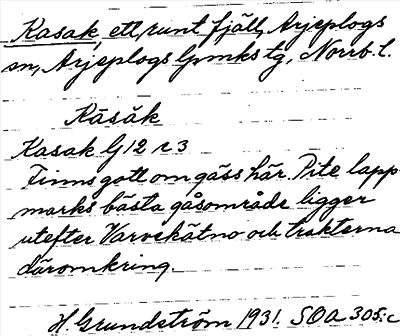 Kasak, ett runt fjäll, Arjeplogs
sn, Arjeplogs lpmks tg, Norrb. l.
Kāsǎk
Kasak G 12 r 3
Finns gott om gäss här. Pite lapp-
marks bästa gåsområde ligger
utefter Varvekätno och trakterna
däromkring.
H. Grundström 1931. SOA 305:c